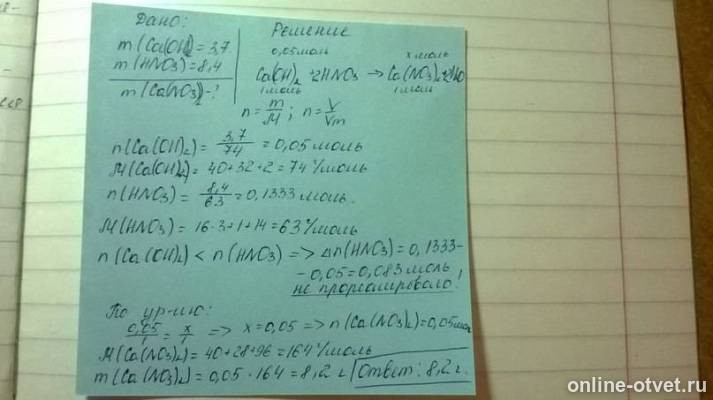 Дано:
m(Ca(OH)₂=3,7
m(HNO₃)=8,4
m(Ca(NO₃)₂)-?
Решение
0,05моль х моль
Ca(OH)₂+2HNO₃ → Ca(NO₃)₂+2H₂O
1моль 1моль
n=m/M; n=V/Vm
n(Ca(OH)₂)=3,7/74=0,05моль
M(Ca(OH)₂)=40+32+2=74г/моль
n(HNO₃)=8,4/63=0,1333моль.
M(HNO₃)=16·3+1+14=63г/моль
n(Ca(OH)₂<n(HNO₃) => Δn(HNO₃)=0,1333-
-0,05=0,083моль,
не прореагировало!
По ур-ию:
0,05/1=x/1 => x=0,05 => n(Ca(NO₃)₂)=0,05моль
M(Ca(NO₃)₂)=40+28+96=164г/моль
m(Ca(NO₃)₂)=0,05·164=8,2г Ответ: 8,2г.
online-otvet.ru